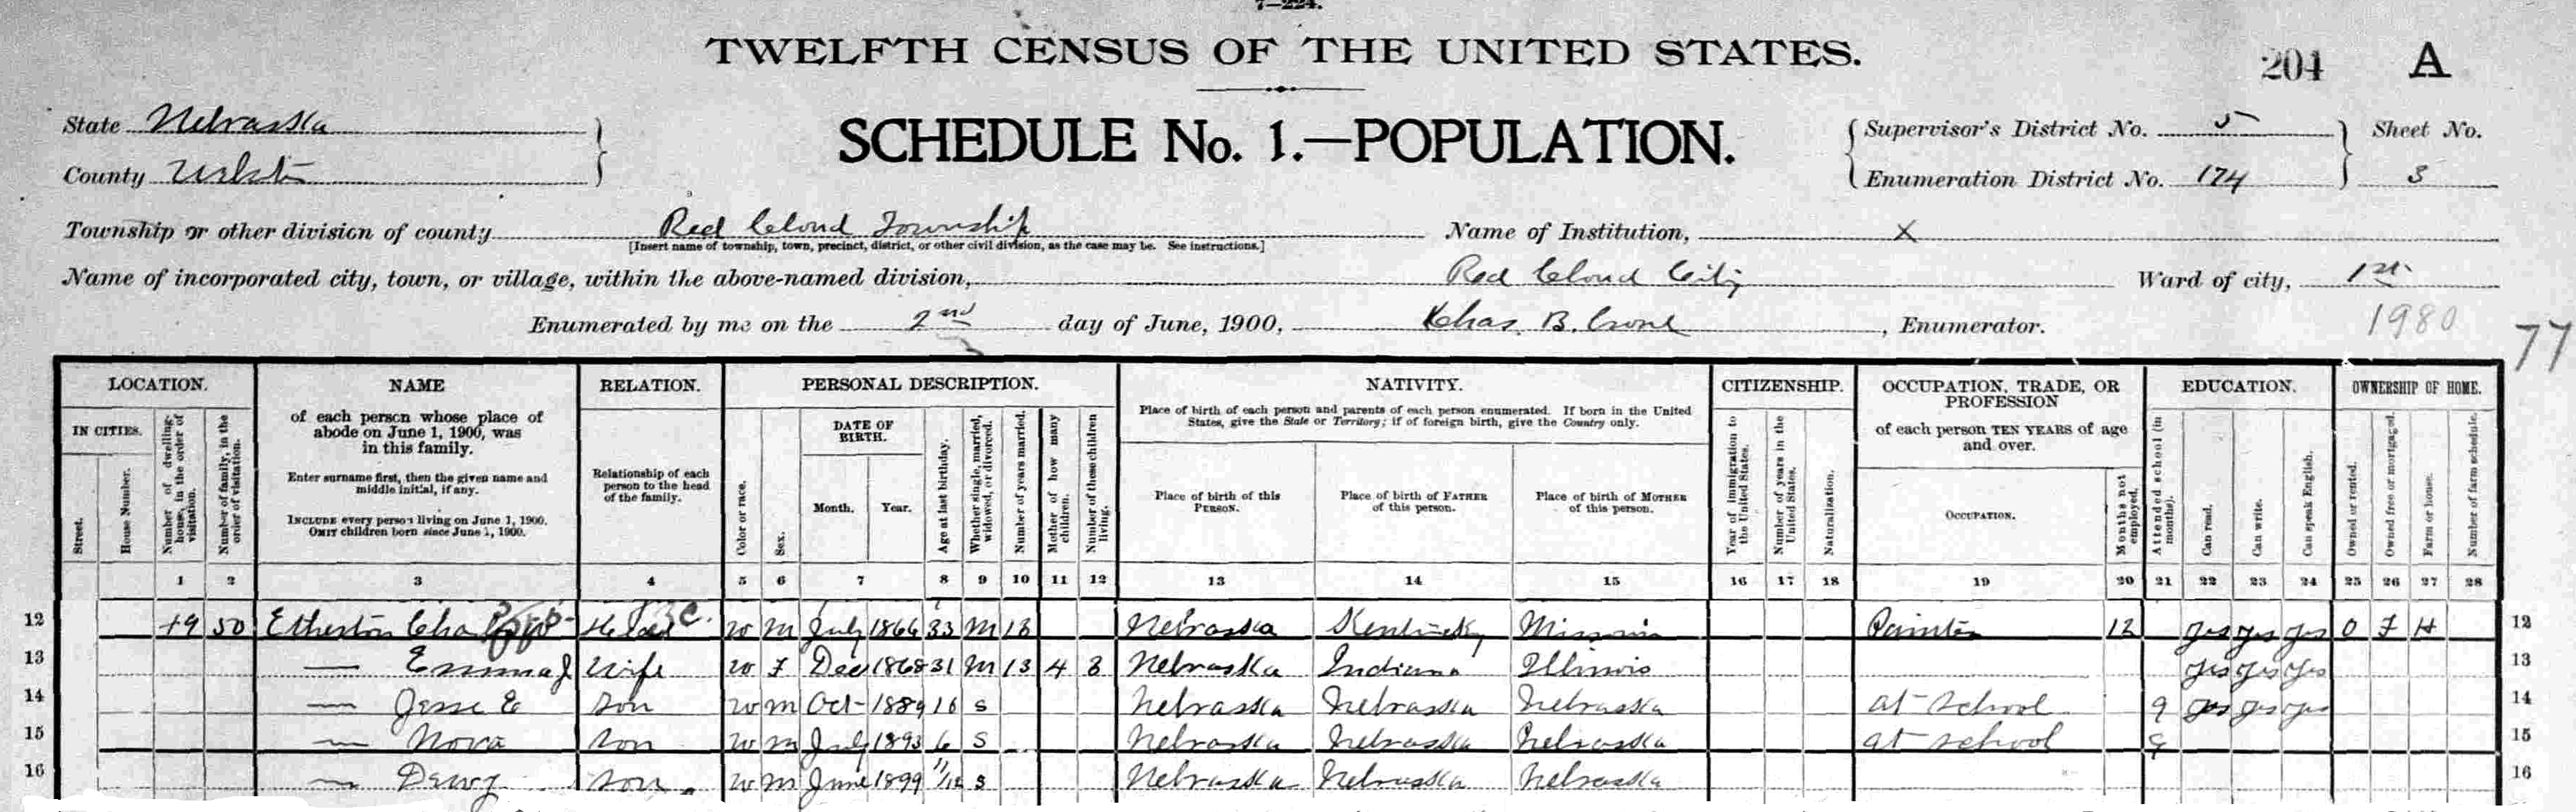 7—224.
TWELFTH CENSUS OF THE UNITED STATES.
204 A
State Nebraska
SCHEDULE No. 1.—POPULATION.
Supervisor's District No. 5 Sheet No.
County Webster
Enumeration District No. 174 3
Township or other division of county Red Cloud Township Name of Institution, X
[Insert name of township, town, precinct, district, or other civil division, as the case may be. See instructions.]
Name of incorporated city, town, or village, within the above-named division, Red Cloud City Ward of city, 1st
Enumerated by me on the 2nd day of June, 1900, Chas. B. Crone, Enumerator.
1980
77
LOCATION. NAME RELATION. PERSONAL DESCRIPTION. NATIVITY. CITIZENSHIP. OCCUPATION, TRADE, OR PROFESSION EDUCATION. OWNERSHIP OF HOME.
IN CITIES.
Street.
House Number.
Number of dwelling-house, in the order of visitation.
Number of family, in the order of visitation.
of each person whose place of abode on June 1, 1900, was in this family.
Enter surname first, then the given name and middle initial, if any.
INCLUDE every person living on June 1, 1900.
OMIT children born since June 1, 1900.
Relationship of each person to the head of the family.
Color or race.
Sex.
DATE OF BIRTH.
Month. Year.
Age at last birthday.
Whether single, married, widowed, or divorced.
Number of years married.
Mother of how many children.
Number of these children living.
Place of birth of each person and parents of each person enumerated. If born in the United States, give the State or Territory; if of foreign birth, give the Country only.
Place of birth of this PERSON.
Place of birth of FATHER of this person.
Place of birth of MOTHER of this person.
Year of immigration to the United States.
Number of years in the United States.
Naturalization.
of each person TEN YEARS of age and over.
OCCUPATION.
Months not employed.
Attended school (in months).
Can read.
Can write.
Can speak English.
Owned or rented.
Owned free or mortgaged.
Farm or house.
Number of farm schedule.
1 2 3 4 5 6 7 8 9 10 11 12 13 14 15 16 17 18 19 20 21 22 23 24 25 26 27 28
12 49 50 Etherton Cha Head W M July 1866 33 M 13 Nebraska Kentucky Missouri Painter 12 yes yes yes O F H 12
13 — Emma J Wife W F Dec 1868 31 M 13 4 3 Nebraska Indiana Illinois yes yes yes 13
14 — Jesse E Son W M Oct 1889 10 S Nebraska Nebraska Nebraska at school 9 yes yes yes 14
15 — Nova Son W M July 1893 6 S Nebraska Nebraska Nebraska at school 9 15
16 — Dewy Son W M June 1899 11/12 S Nebraska Nebraska Nebraska 16